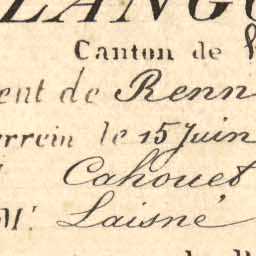 LANGU
Canton de
ent de Renn
errein le 15 Juin
Cahouet
Mr. Laisné